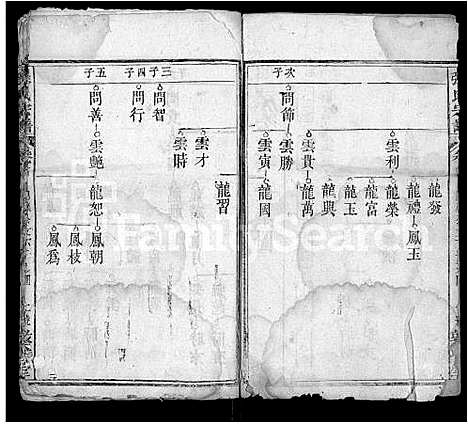 次子
問節
雲利
雲貴
雲勝
雲寅
龍發
龍禮
鳳玉
龍榮
龍富
龍玉
龍興
龍萬
龍國
三子
四子
五子
問智
問行
問善
雲才
雲時
雲艷
龍習
龍恕
鳳朝
鳳枝
鳳為
FamilySearch